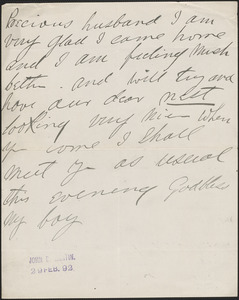 Precious husband I am
very glad I came home
and I am feeling Much
better. and will try and
have our dear nest
looking very nice when
you come I shall
meet you as usual
this evening Godbless
my boy
JOHN
29 FEB. 92